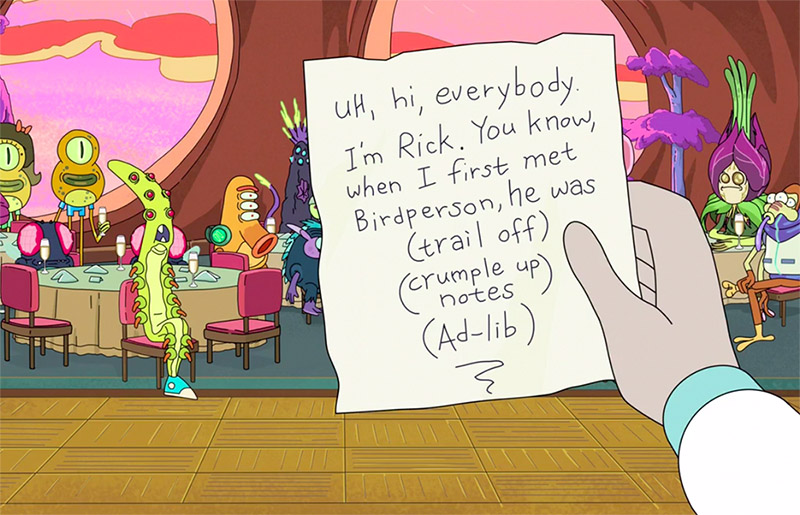 uH, hi, everybody.
I'm Rick. You know,
when I first met
Birdperson, he was
(trail off)
(crumple up
notes)
(Ad-lib)